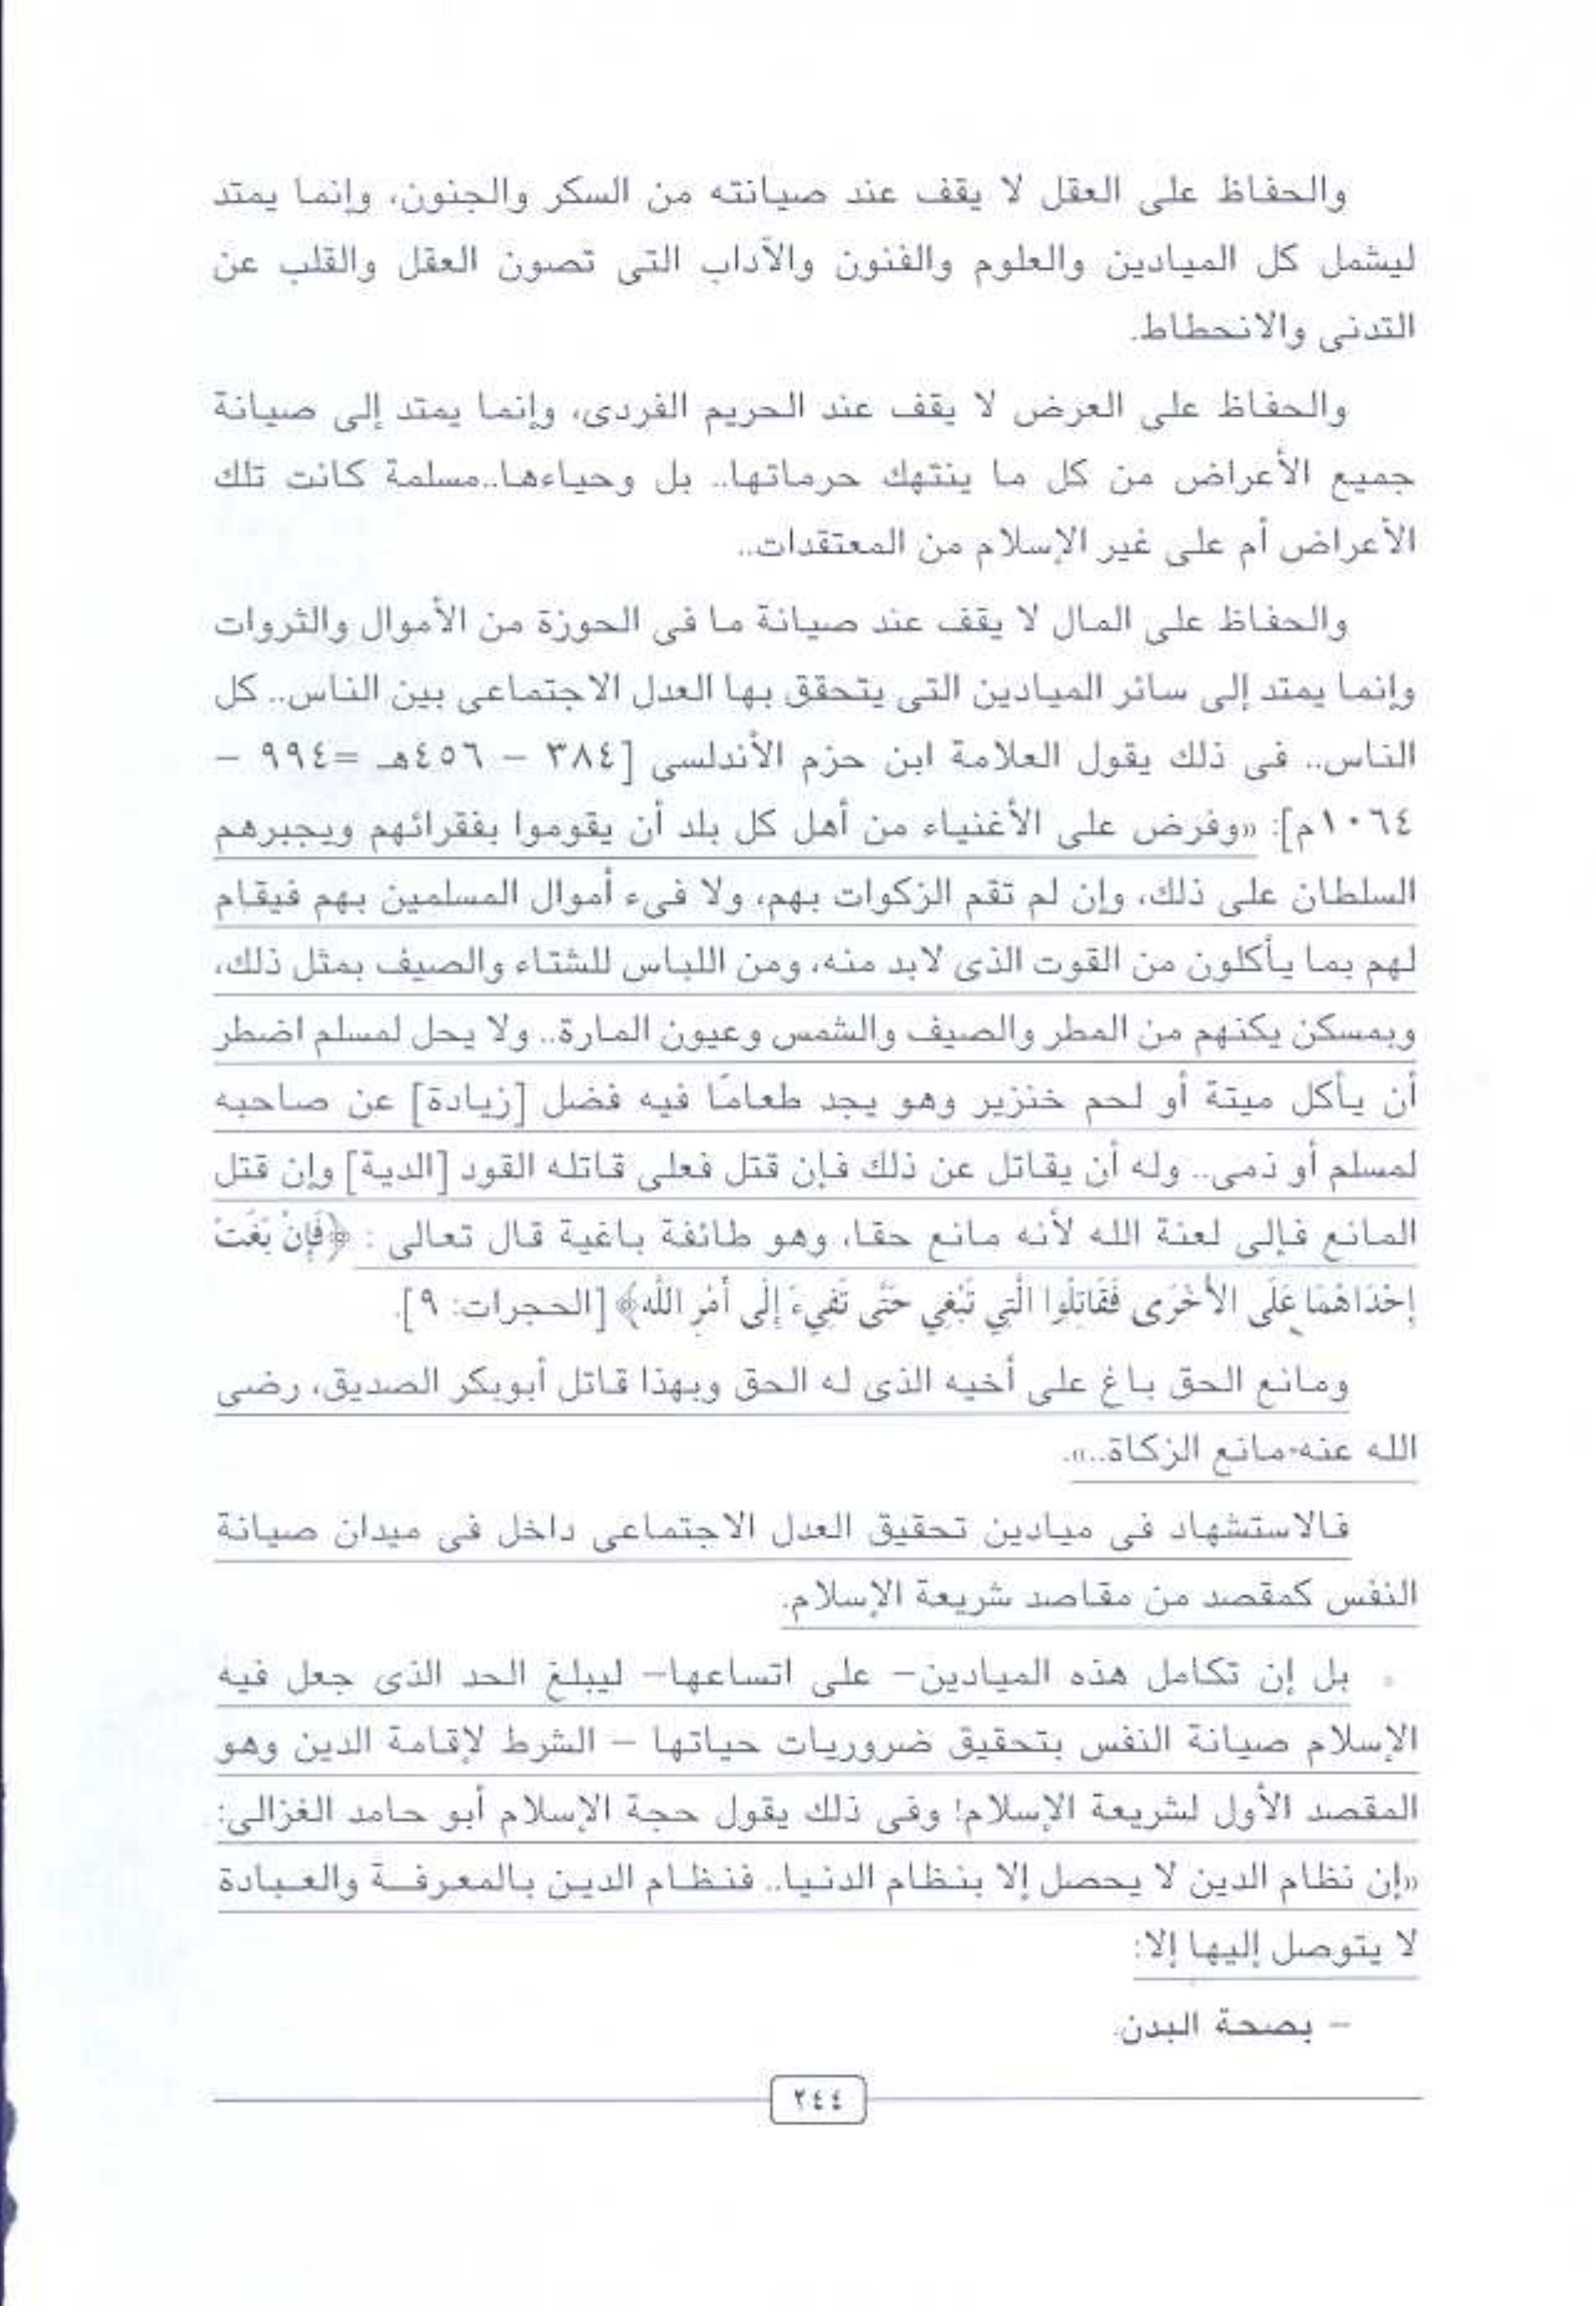 والحفاظ على العقل لا يقف عند صيانته من السكر والجنون، وإنما يمتد
ليشمل كل الميادين والعلوم والفنون والآداب التى تصون العقل والقلب عن
التدنى والانحطاط.
والحفاظ على العرض لا يقف عند الحريم الفردى، وإنما يمتد إلى صيانة
جميع الأعراض من كل ما ينتهك حرماتها.. بل وحياءها..مسلمة كانت تلك
الأعراض أم على غير الإسلام من المعتقدات..
والحفاظ على المال لا يقف عند صيانة ما فى الحوزة من الأموال والثروات
وإنما يمتد إلى سائر الميادين التى يتحقق بها العدل الاجتماعى بين الناس.. كل
الناس.. فى ذلك يقول العلامة ابن حزم الأندلسى [٣٨٤ – ٤٥٦هـ =٩٩٤ –
١٠٦٤م]: «وفرض على الأغنياء من أهل كل بلد أن يقوموا بفقرائهم ويجبرهم
السلطان على ذلك، وإن لم تقم الزكوات بهم، ولا فىء أموال المسلمين بهم فيقام
لهم بما يأكلون من القوت الذى لابد منه، ومن اللباس للشتاء والصيف بمثل ذلك،
وبمسكن يكنهم من المطر والصيف والشمس وعيون المارة.. ولا يحل لمسلم اضطر
أن يأكل ميتة أو لحم خنزير وهو يجد طعامًا فيه فضل [زيادة] عن صاحبه
لمسلم أو ذمى.. وله أن يقاتل عن ذلك فإن قتل فعلى قاتله القود [الدية] وإن قتل
المانع فإلى لعنة الله لأنه مانع حقا، وهو طائفة باغية قال تعالى : ﴿فَإِنْ بَغَتْ
إِحْدَاهُمَا عَلَى الأُخْرَى فَقَاتِلُوا الَّتِي تَبْغِي حَتَّى تَفِيءَ إِلَى أَمْرِ اللَّهِ﴾ [الحجرات: ٩].
ومانع الحق باغ على أخيه الذى له الحق وبهذا قاتل أبوبكر الصديق، رضى
الله عنه-مانع الزكاة..».
فالاستشهاد فى ميادين تحقيق العدل الاجتماعى داخل فى ميدان صيانة
النفس كمقصد من مقاصد شريعة الإسلام.
بل إن تكامل هذه الميادين– على اتساعها– ليبلغ الحد الذى جعل فيه
الإسلام صيانة النفس بتحقيق ضروريات حياتها – الشرط لإقامة الدين وهو
المقصد الأول لشريعة الإسلام! وفى ذلك يقول حجة الإسلام أبو حامد الغزالى:
«إن نظام الدين لا يحصل إلا بنظام الدنيا.. فنظام الدين بالمعرفة والعبادة
لا يتوصل إليها إلا:
– بصحة البدن.
٢٤٤